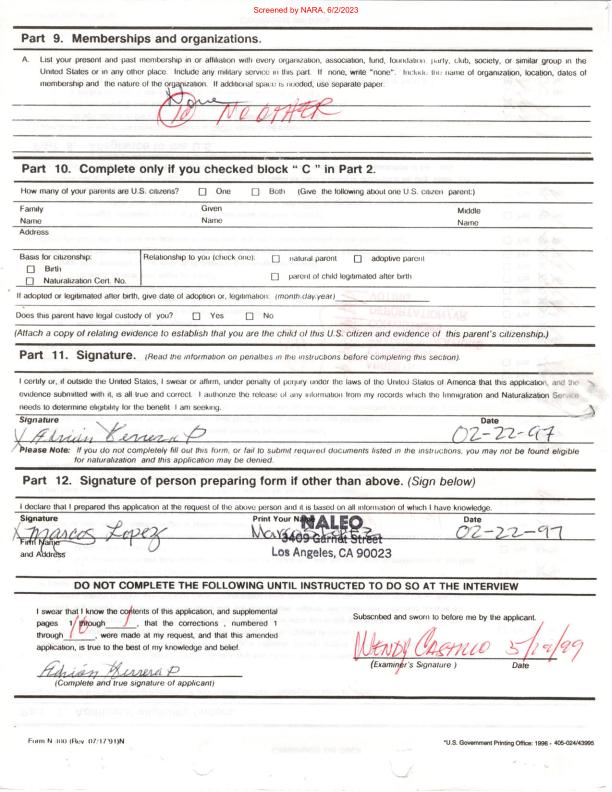 Screened by NARA, 6/2/2023
Part 9. Memberships and organizations.
A. List your present and past membership in or affiliation with every organization, association, fund, foundation, party, club, society, or similar group in the
United States or in any other place. Include any military service in this part. If none, write "none". Include the name of organization, location, dates of
membership and the nature of the organization. If additional space is needed, use separate paper.
None
10 NO OTHER
Part 10. Complete only if you checked block " C " in Part 2.
How many of your parents are U.S. citizens? ☐ One ☐ Both (Give the following about one U.S. citizen parent:)
Family Given Middle
Name Name Name
Address
Basis for citizenship: Relationship to you (check one): ☐ natural parent ☐ adoptive parent
☐ Birth
☐ Naturalization Cert. No. ☐ parent of child legitimated after birth
If adopted or legitimated after birth, give date of adoption or, legitimation: (month/day/year)
Does this parent have legal custody of you? ☐ Yes ☐ No
(Attach a copy of relating evidence to establish that you are the child of this U.S. citizen and evidence of this parent's citizenship.)
Part 11. Signature. (Read the information on penalties in the instructions before completing this section).
I certify or, if outside the United States, I swear or affirm, under penalty of perjury under the laws of the United States of America that this application, and the
evidence submitted with it, is all true and correct. I authorize the release of any information from my records which the Immigration and Naturalization Service
needs to determine eligibility for the benefit I am seeking.
Signature Date
X Adrián Herrera P 02-22-97
Please Note: If you do not completely fill out this form, or fail to submit required documents listed in the instructions, you may not be found eligible
for naturalization and this application may be denied.
Part 12. Signature of person preparing form if other than above. (Sign below)
I declare that I prepared this application at the request of the above person and it is based on all information of which I have knowledge.
Signature Print Your Name Date
X Marcos Lopez Marcos Lopez 02-22-97
NALEO
Firm Name 3409 Garnet Street
and Address Los Angeles, CA 90023
DO NOT COMPLETE THE FOLLOWING UNTIL INSTRUCTED TO DO SO AT THE INTERVIEW
I swear that I know the contents of this application, and supplemental
pages 1 through 1, that the corrections , numbered 1
through 10, were made at my request, and that this amended
application, is true to the best of my knowledge and belief.
Adrián Herrera P
(Complete and true signature of applicant)
Subscribed and sworn to before me by the applicant.
WENDY CASTILLO 5/19/99
(Examiner's Signature ) Date
Form N-400 (Rev. 07/17/91)N *U.S. Government Printing Office: 1996 - 405-024/43995